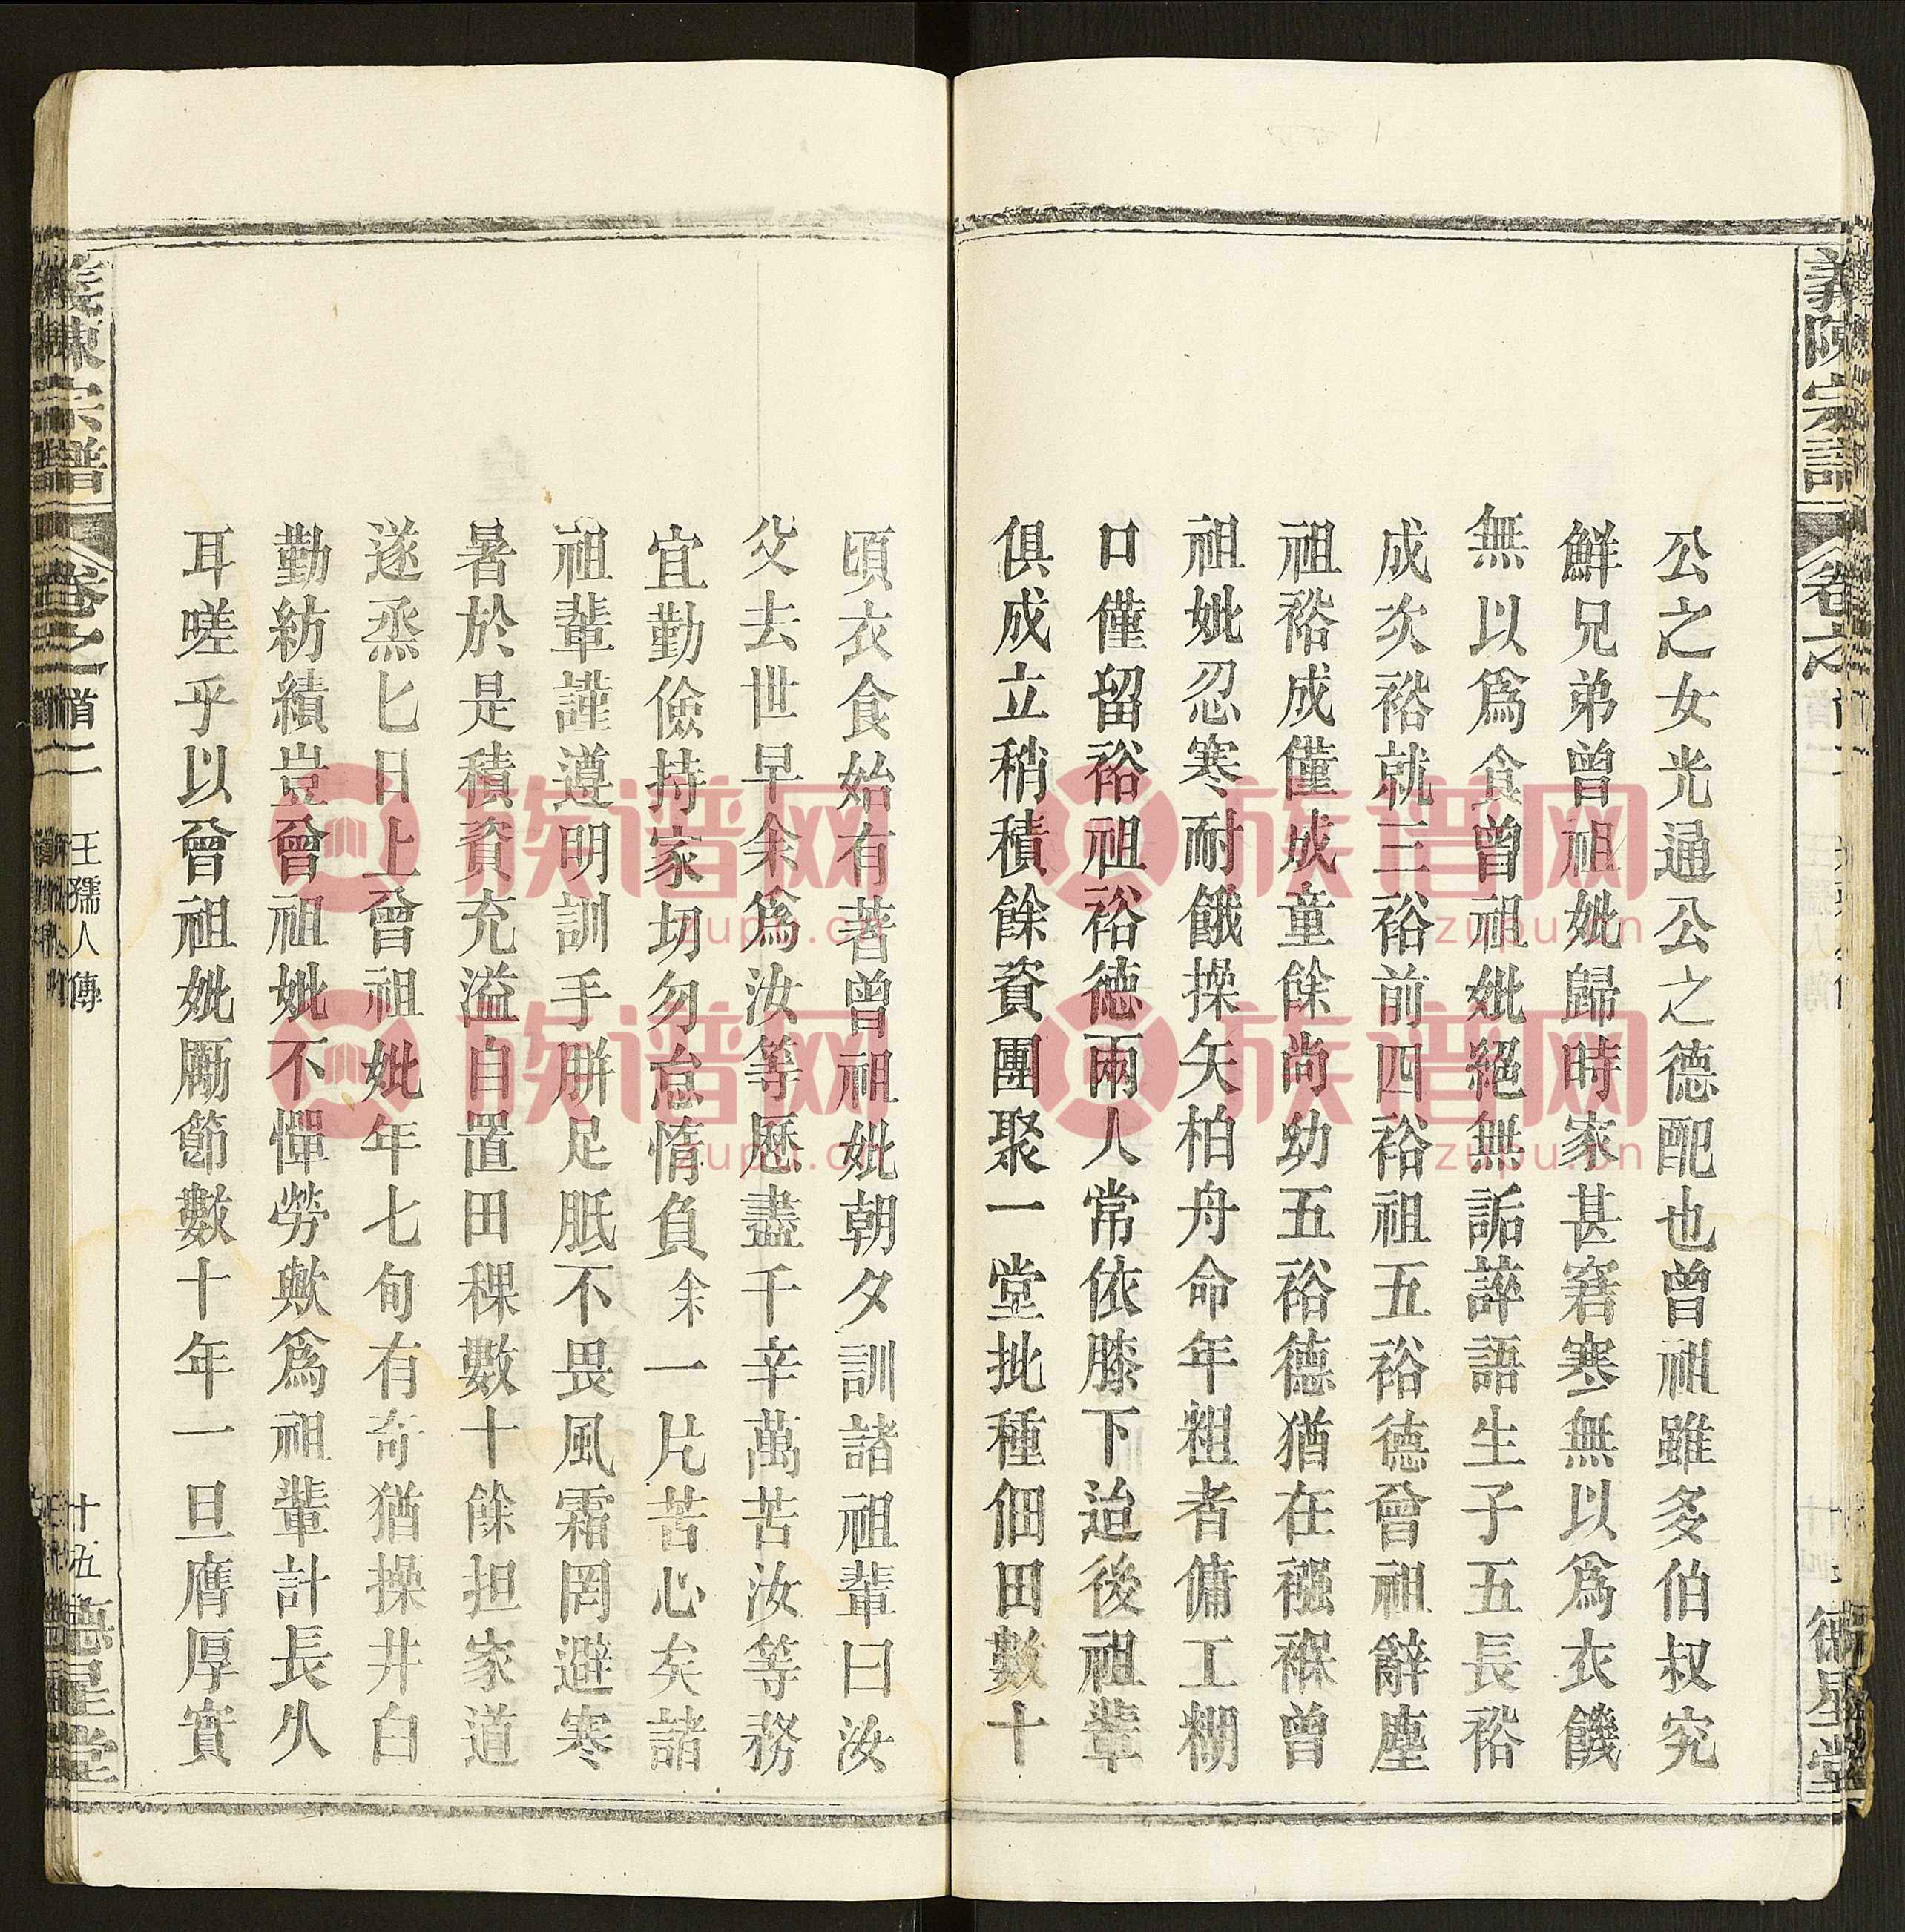 義陳宗譜 卷之
德星堂
公之女光通公之德配也曾祖雖多伯叔究
鮮兄弟曾祖妣歸時家甚窘寒無以爲衣饑
無以爲食曾祖妣絕無詬誶語生子五長裕
成次裕就三裕前四裕祖五裕德曾祖辭塵
祖裕成僅成童餘尚幼五裕德猶在襁褓曾
祖妣忍寒耐餓操矢柏舟命年粗者傭工糊
口僅留裕祖裕德兩人常依膝下迨後祖輩
俱成立稍積餘資團聚一堂批種佃田數十
頃衣食始有著曾祖妣朝夕訓諸祖輩曰汝
父去世早余爲汝等歷盡千辛萬苦汝等務
宜勤儉持家切勿怠惰負余一片苦心矣諸
祖輩謹遵明訓手胼足胝不畏風霜罔避寒
暑於是積資充溢自置田稞數十餘担家道
遂烝匕日上曾祖妣年七旬有奇猶操井白
勤紡績豈曾祖妣不憚勞歟爲祖輩計長久
耳嗟乎以曾祖妣勵節數十年一旦膺厚實
義陳宗譜 卷之首二 王孺人傳 十五 德星堂
族谱网
zupu.cn
族谱网
zupu.cn
族谱网
zupu.cn
族谱网
zupu.cn